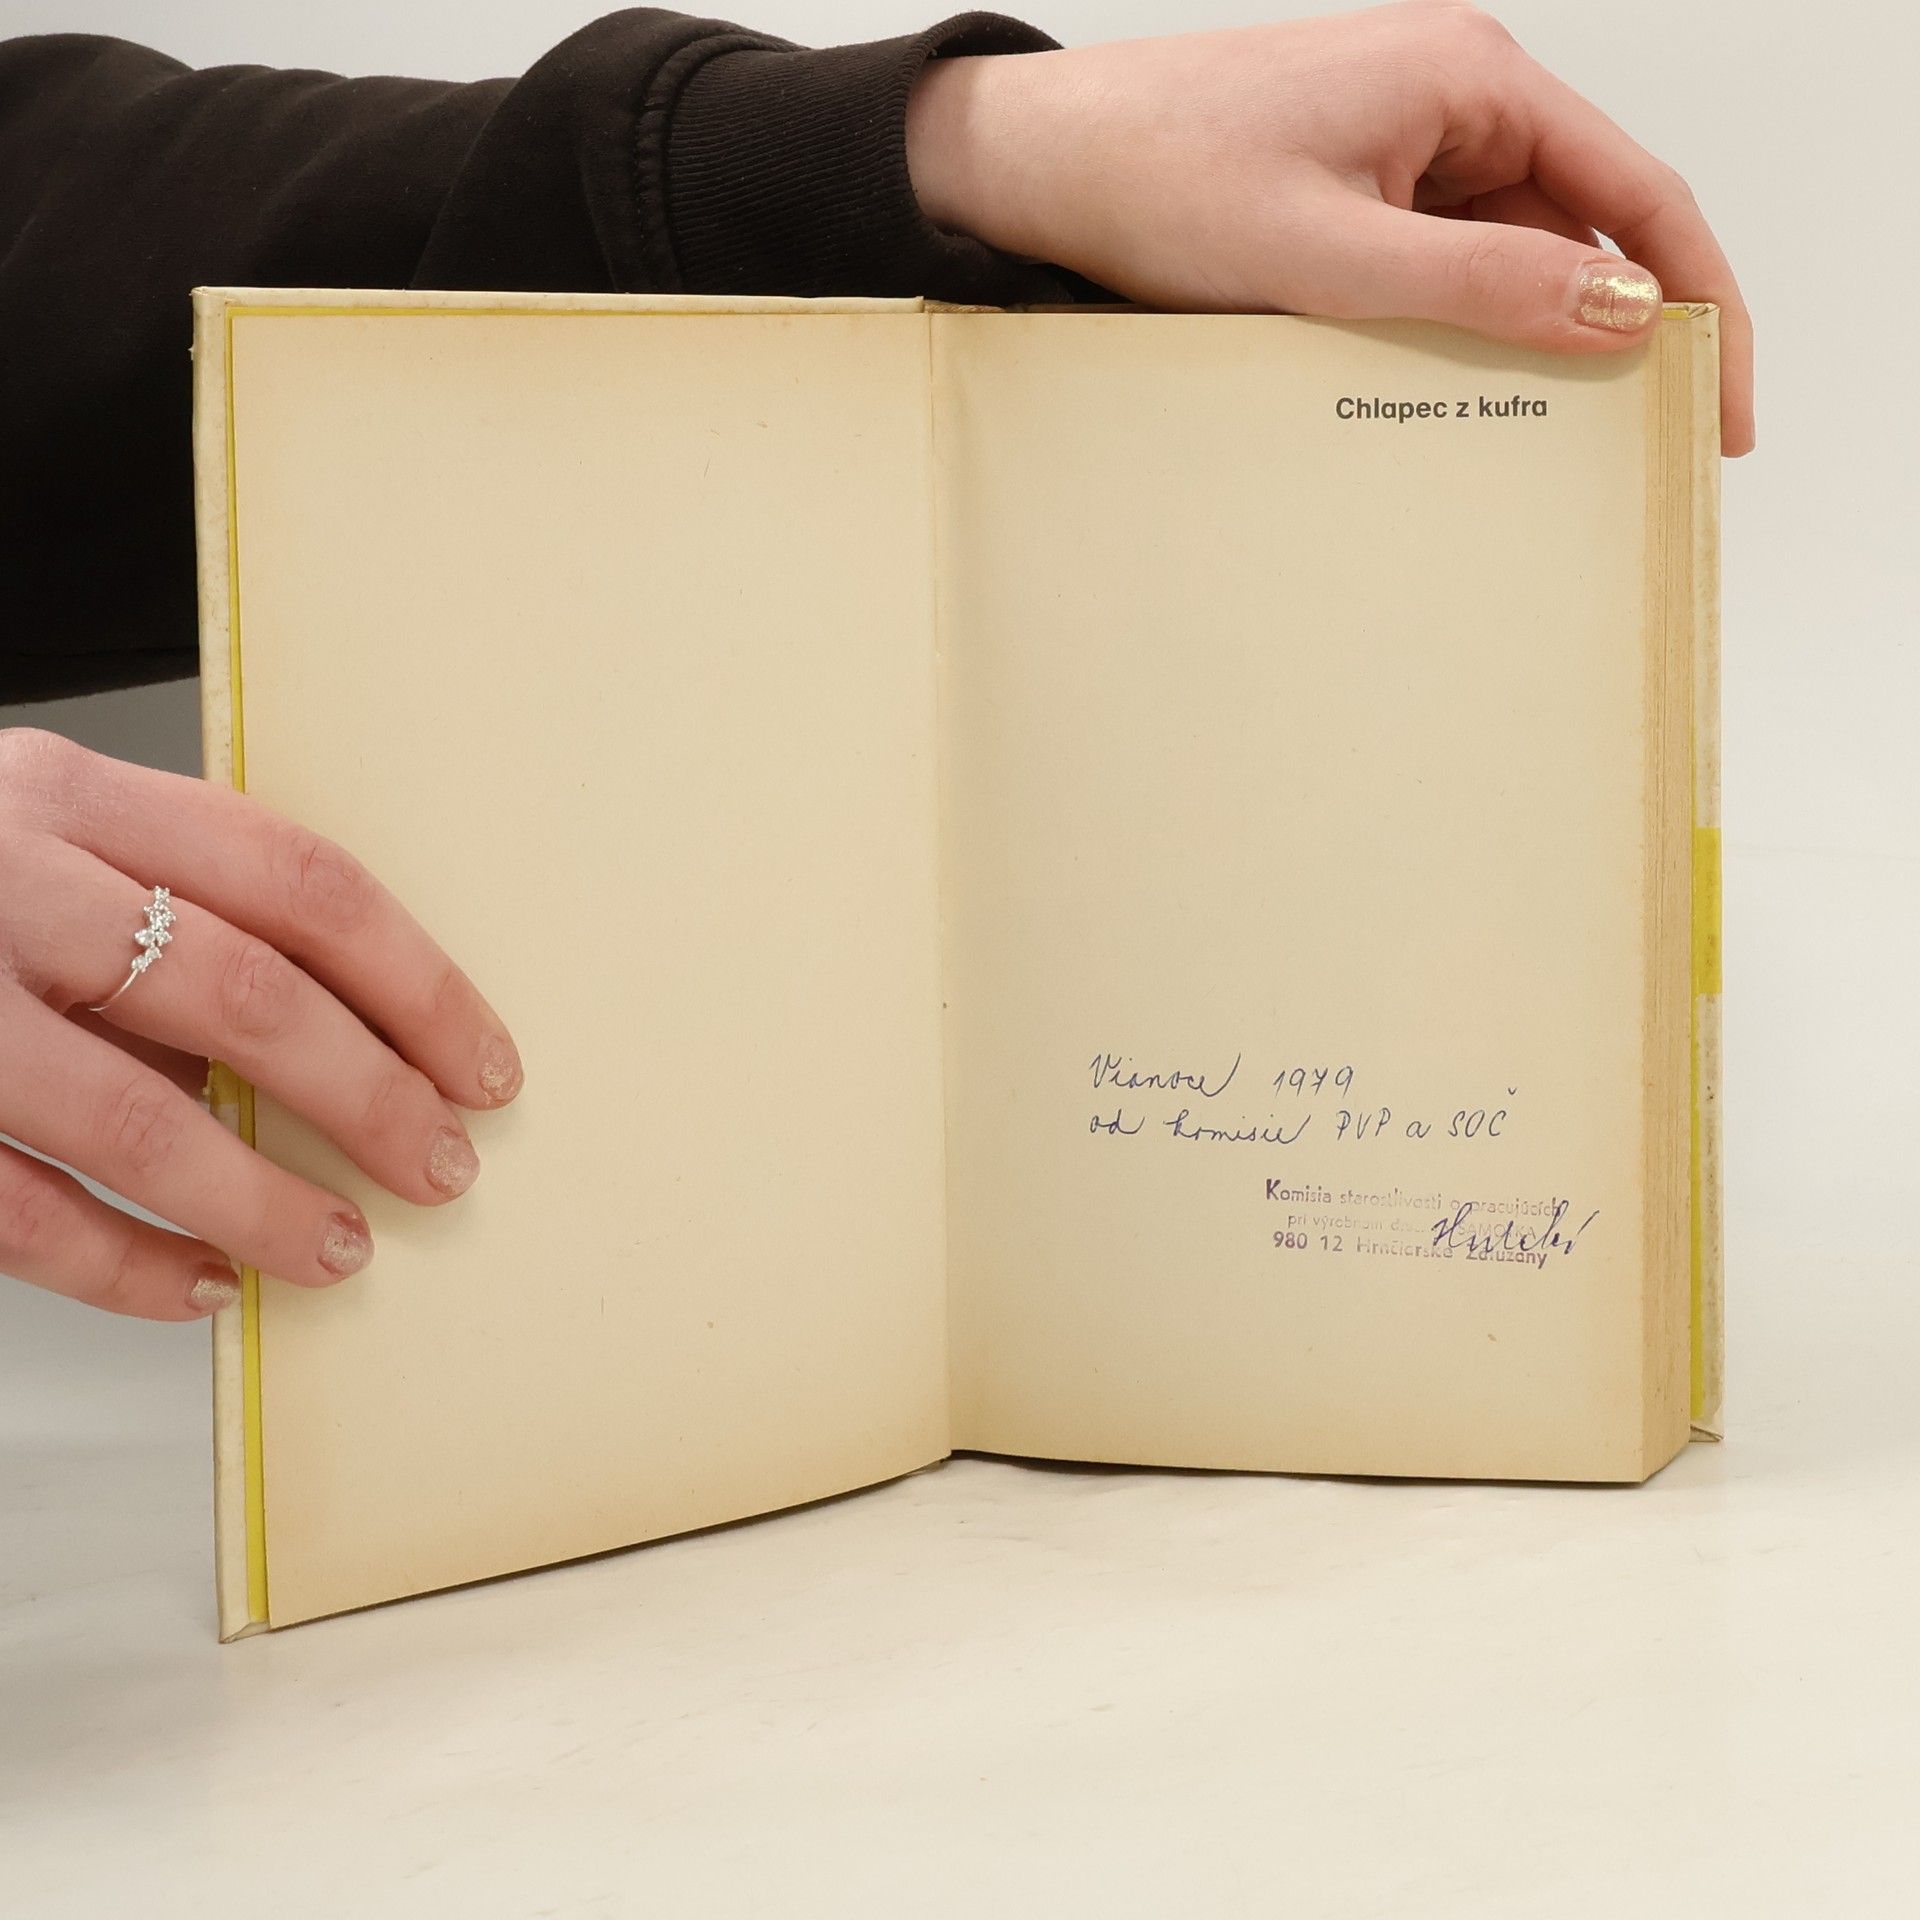 Chlapec z kufra
Vianoce 1979
od komisie PVP a SOČ
Komisia starostlivosti o pracujúcich
pri výrobnom
980 12 Hrnčiarske Zalužany